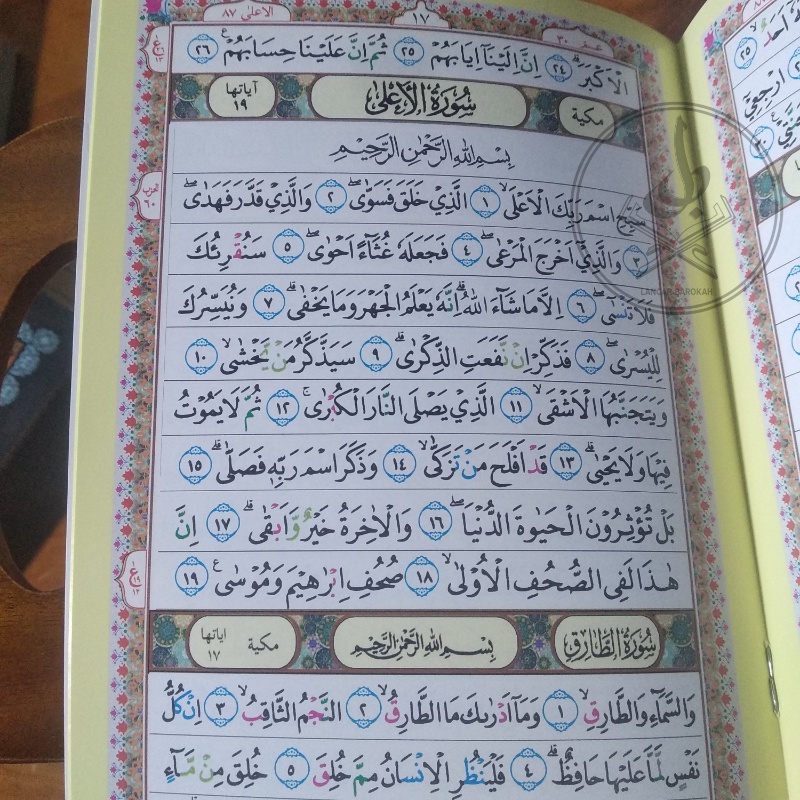 الاعلى ٨٧
١٧
عم ٣٠
الْاَكْبَرَ ۗ ٢٤ اِنَّ اِلَيْنَآ اِيَابَهُمْ ٢٥ ثُمَّ اِنَّ عَلَيْنَا حِسَابَهُمْ ٢٦
مكية
سُورَةُ الْاَعْلٰى
آياتها ١٩
بِسْمِ اللهِ الرَّحْمٰنِ الرَّحِيْمِ
سَبِّحِ اسْمَ رَبِّكَ الْاَعْلَى ١ الَّذِيْ خَلَقَ فَسَوّٰى ٢ وَالَّذِيْ قَدَّرَ فَهَدٰى
٣ وَالَّذِيْٓ اَخْرَجَ الْمَرْعٰى ٤ فَجَعَلَهٗ غُثَآءً اَحْوٰى ٥ سَنُقْرِئُكَ
فَلَا تَنْسٰٓى ٦ اِلَّا مَا شَآءَ اللهُ ۗ اِنَّهٗ يَعْلَمُ الْجَهْرَ وَمَا يَخْفٰى ٧ وَنُيَسِّرُكَ
لِلْيُسْرٰى ٨ فَذَكِّرْ اِنْ نَّفَعَتِ الذِّكْرٰى ٩ سَيَذَّكَّرُ مَنْ يَّخْشٰى ١٠
وَيَتَجَنَّبُهَا الْاَشْقَى ١١ الَّذِيْ يَصْلَى النَّارَ الْكُبْرٰى ١٢ ثُمَّ لَا يَمُوْتُ
فِيْهَا وَلَا يَحْيٰى ١٣ قَدْ اَفْلَحَ مَنْ تَزَكّٰى ١٤ وَذَكَرَ اسْمَ رَبِّهٖ فَصَلّٰى ١٥
بَلْ تُؤْثِرُوْنَ الْحَيٰوةَ الدُّنْيَا ١٦ وَالْاٰخِرَةُ خَيْرٌ وَّاَبْقٰى ١٧ اِنَّ
هٰذَا لَفِى الصُّحُفِ الْاُوْلٰى ١٨ صُحُفِ اِبْرٰهِيْمَ وَمُوْسٰى ١٩
سُورَةُ الطَّارِقِ
بِسْمِ اللهِ الرَّحْمٰنِ الرَّحِيْمِ
مكية
اياتها ١٧
وَالسَّمَآءِ وَالطَّارِقِ ١ وَمَآ اَدْرٰىكَ مَا الطَّارِقُ ٢ النَّجْمُ الثَّاقِبُ ٣ اِنْ كُلُّ
نَفْسٍ لَّمَّا عَلَيْهَا حَافِظٌ ٤ فَلْيَنْظُرِ الْاِنْسَانُ مِمَّ خُلِقَ ٥ خُلِقَ مِنْ مَّآءٍ
الحزب ٦٠
LANCAR BAROKAH
ارجعي